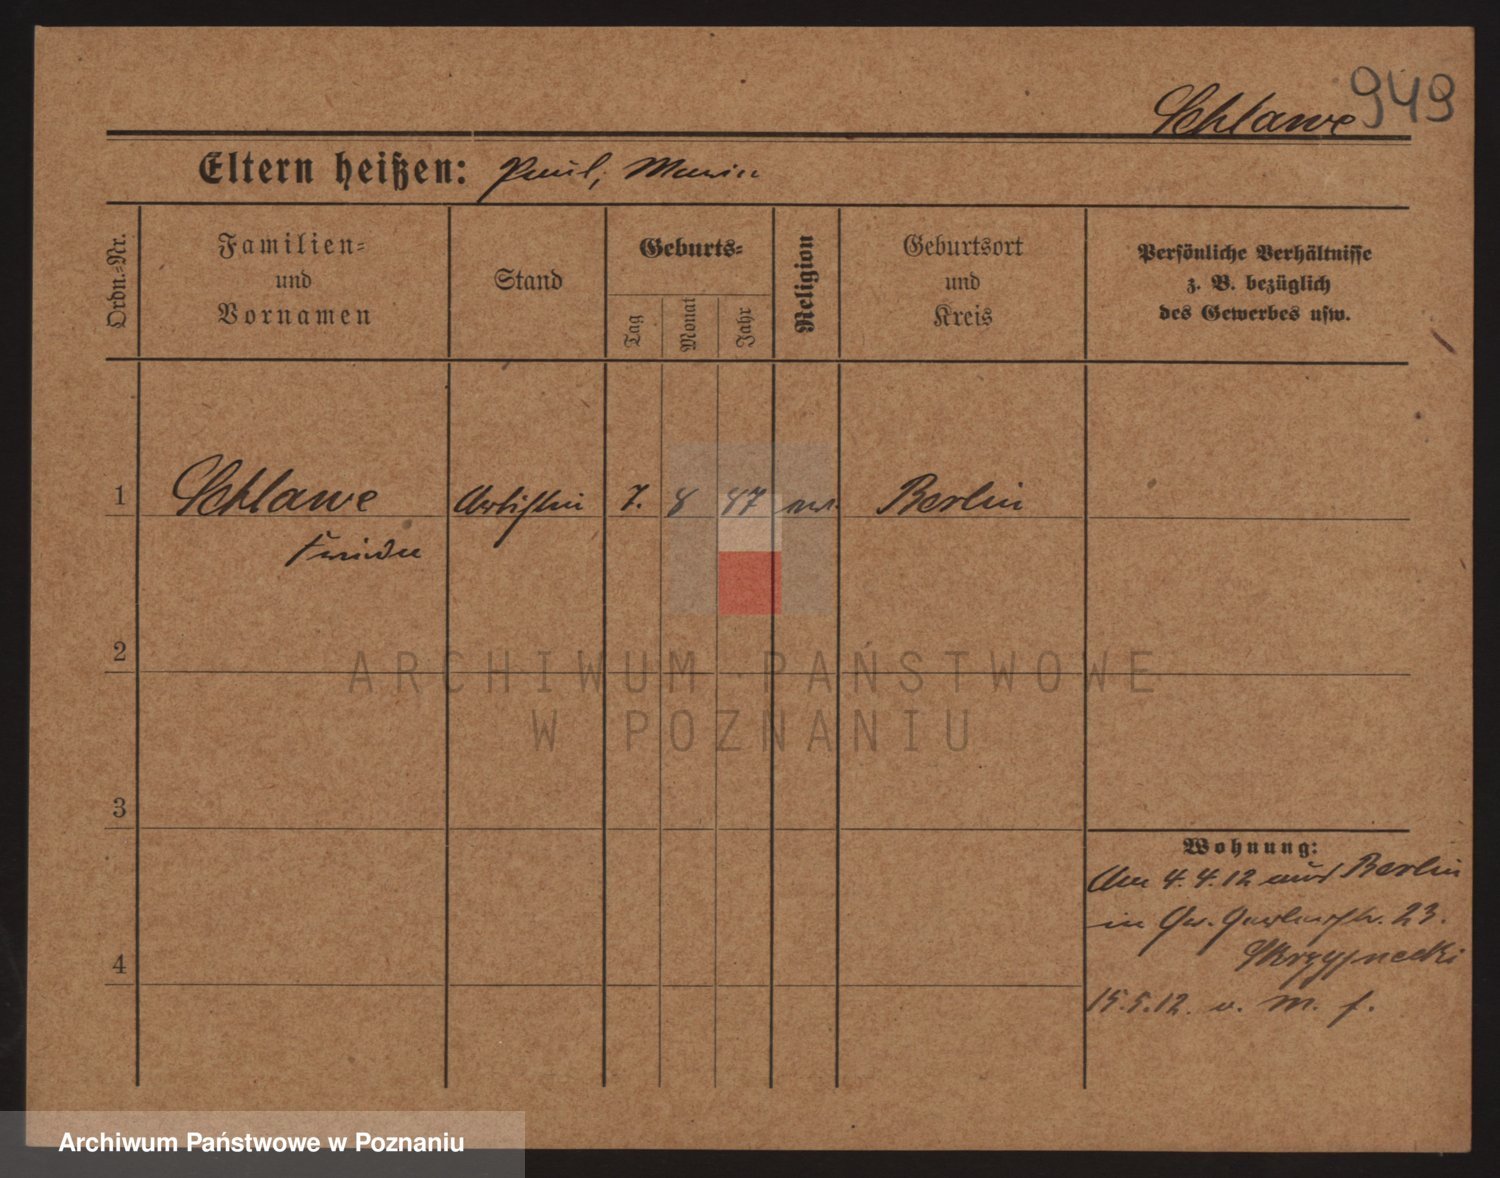 Schlawe 949
Eltern heißen: Paul, Maria
Ordn.=Nr.
Familien=
und
Vornamen
Stand
Geburts=
Tag
Monat
Jahr
Religion
Geburtsort
und
Kreis
Persönliche Verhältnisse
z. B. bezüglich
des Gewerbes usw.
1 Schlawe Artistin 7. 8 87 ev. Berlin
Frieda
2
ARCHIWUM PAŃSTWOWE
W POZNANIU
3
Wohnung:
Am 4.4.12 aus Berlin
in Gr. 23.
4
15.5.12. v. M. f.
Archiwum Państwowe w Poznaniu